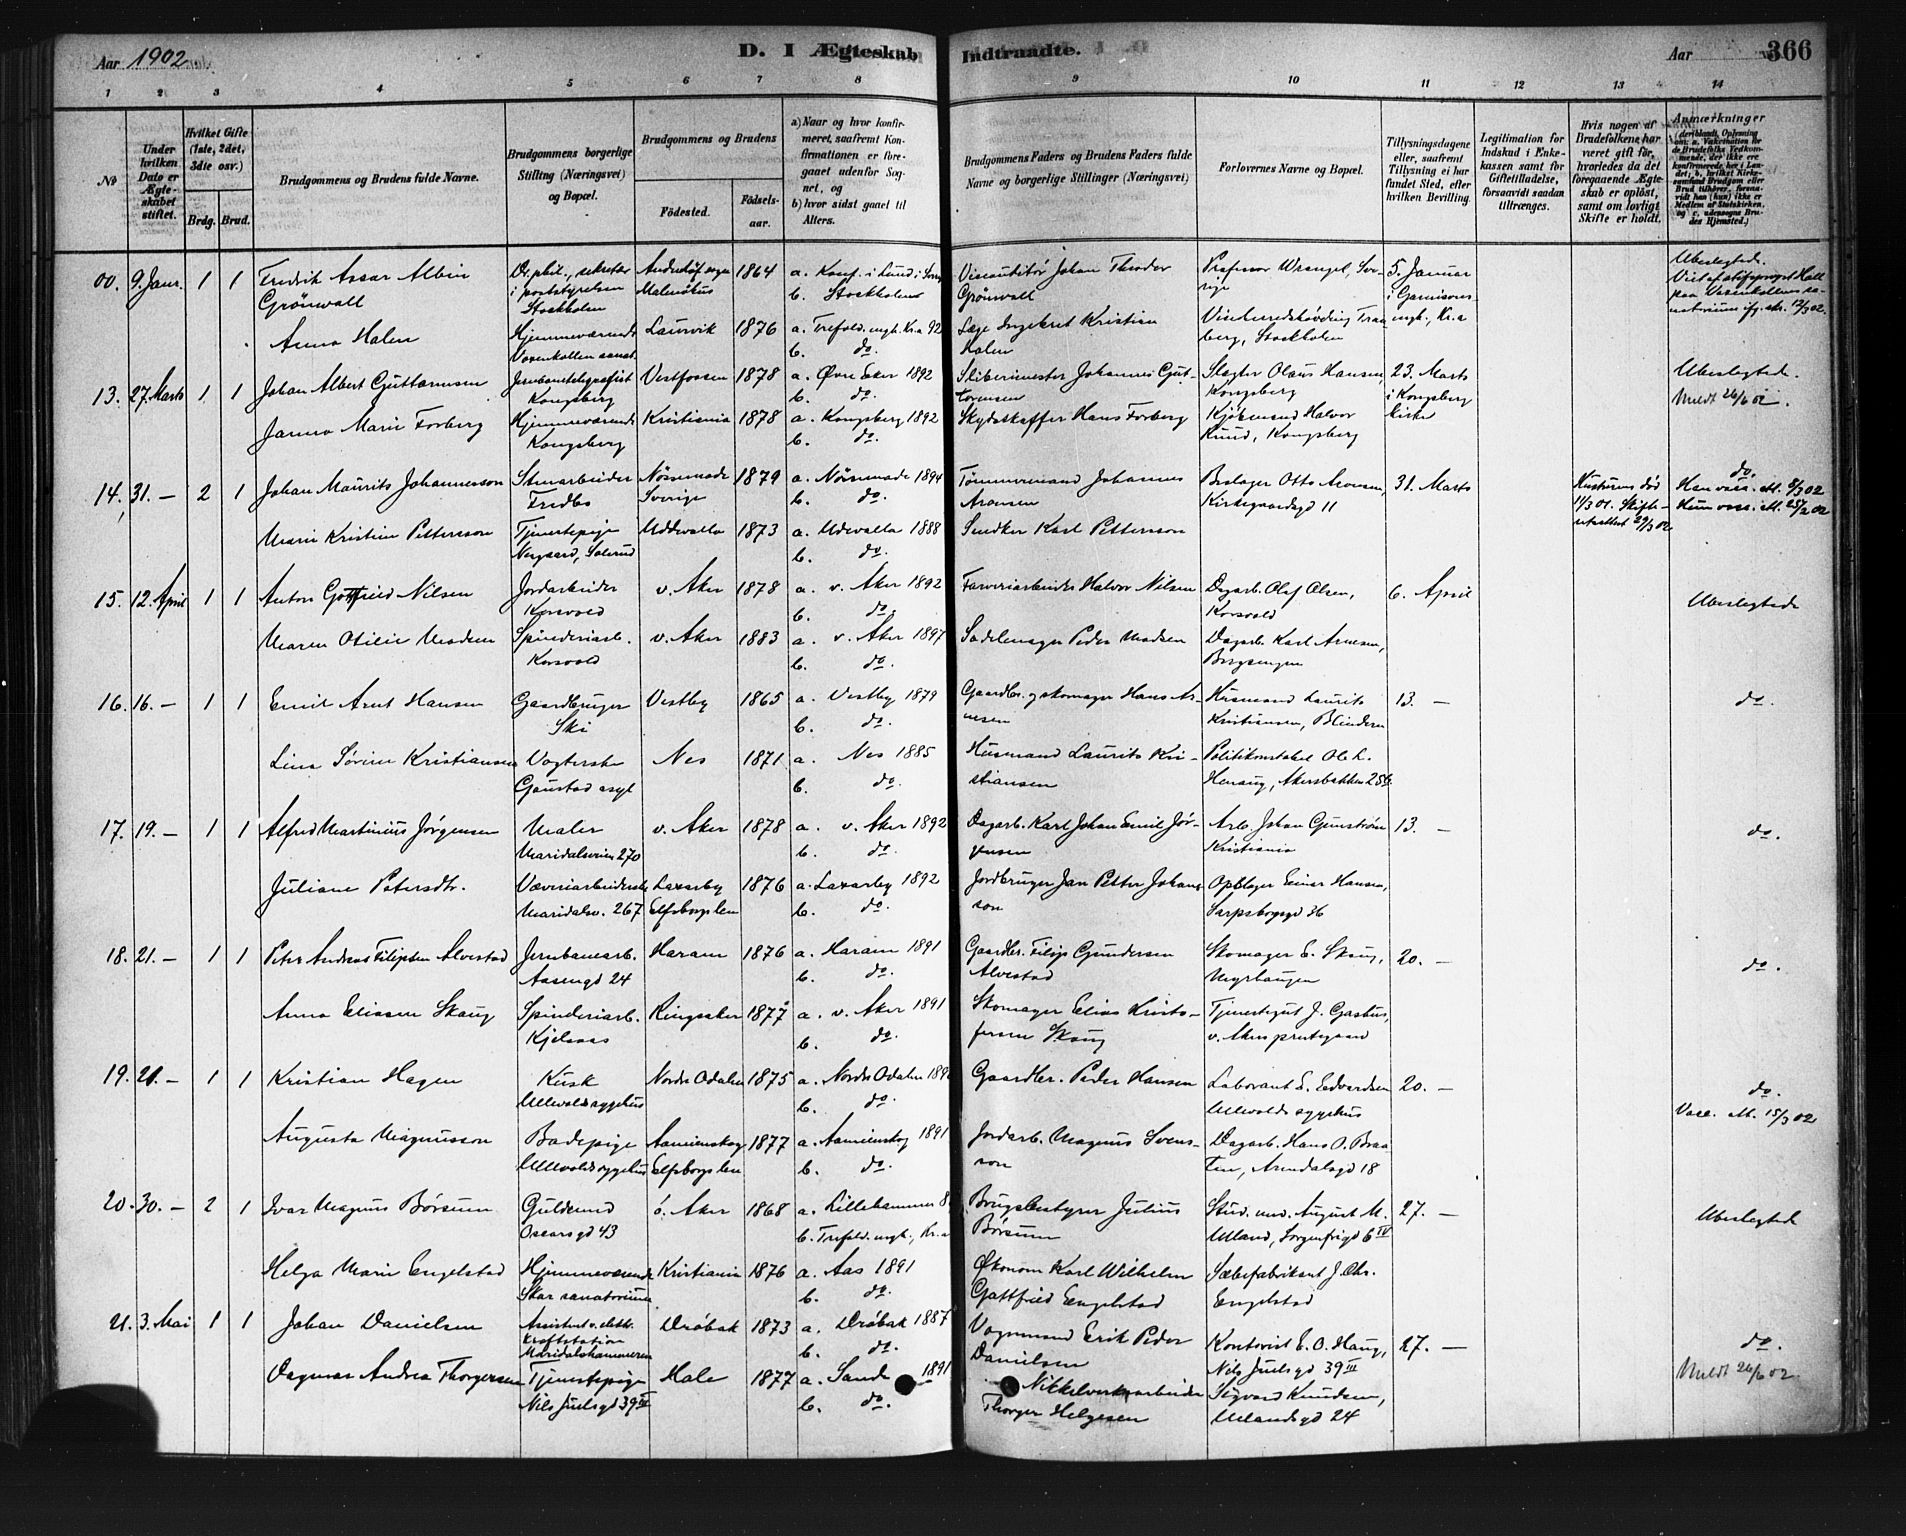 Aar 1902
D. I Ægteskab Indtraadte.
Aar 366
1 2 3 4 5 6 7 8 9 10 11 12 13 14
No
Under hvilken Dato er Ægteskabet stiftet.
Hvilket Gifte (1ste, 2det, 3die osv.)
Brdg. Brud.
Brudgommens og Brudens fulde Navne.
Brudgommens borgerlige Stilling (Næringsvei) og Bopæl.
Brudgommens og Brudens
Fødested. Fødselsaar.
a) Naar og hvor konfirmeret, saafremt Konfirmationen er foregaaet udenfor Sognet, og
b) hvor sidst gaaet til Alters.
Brudgommens Faders og Brudens Faders fulde Navne og borgerlige Stillinger (Næringsvei)
Forlovernes Navne og Bopæl.
Tillysningsdagene eller, saafremt Tillysning ei har fundet Sted, efter hvilken Bevilling.
Legitimation for Indskud i Enkekassen samt for Giftetilladelse, forsaavidt saadan tiltrænges.
Hvis nogen af Brudefolkene har været gift før, hvorledes da det foregaaende Ægteskab er opløst, samt om lovligt Skifte er holdt.
Anmærkninger
00. 9 Janr. 1 1 Fredrik Assar Albin Grönwall
Dr. phil., sekretær i poststyrelsen Stockholm
Malmöhus 1864
a. Konf. i Lund i Sverige
b. Stockholm
Viseauditör Johan Theodor Grönwall
Professor Wrangel, Sverige
5. Januar i Garnisonsmgh., Kr.a
Ubeslegtede.
Anna Holen
Hjemmeværende Voxenkollen sanat.
Laurvik 1876
a. Trefold. mgh. Kr.a 92
b. do.
Læge Ingebret Kristian Holen
berg, Stockholm
13. 27 Marts 1 1 Johan Albert Guttormsen
Jernbanetelegrafist Kongsberg
Vestfossen 1878
a. Øvre Eker 1892
b. do.
Sliberimester Johannes Guttormsen
Slagter Olaus Hansen, Kongsberg
23. Marts i Kongsberg kirke
Ubeslegtede.
Meldt 26/6 02.
Janna Marie Forberg
Hjemmeværende Kongsberg
Kristiania 1878
a. Kongsberg 1892
b. do.
Skydsskaffer Hans Forberg
Kjøbmand Halvor Ruud, Kongsberg
14. 31. — 2 1 Johan Maurits Johannesson
Stenarbeider Fredbo
Sverige 1879
a. 1894
b. do.
Tømmermand Johannes Aronsen
Beslager Otto Aronsen, Kirkegaardsgd 11
31. Marts
Hustruen død 11/3 01.
do.
Marie Kristine Pettersson
Tjenestepige
Uddevalla 1873
a. Udevalla 1888
b. do.
Snedker Karl Pettersson
15. 12. April 1 1 Anton Gottfried Nilsen
Jordarbeider Korsvold
v. Aker 1878
a. v. Aker 1892
b. do.
Farveriarbeider Halvor Nilsen
Dagarb. Olaf Olsen, Korsvold
6. April
Ubeslegtede
Maren Otilie Madsen
Spinderiarb. Korsvold
v. Aker 1883
a. v. Aker 1897
b. do.
Sadelmager Peder Madsen
Dagarb. Karl Arnesen, Bergsengen
16. 16. — 1 1 Emil Arnt Hansen
Gaardbruger Ski
Vestby 1865
a. Vestby 1879
b. do.
Gaardbr. og skomager Hans Arnesen
Husmand Laurits Kristiansen, Blindern
13. —
do.
Lina Sørine Kristiansen
Vogterske Gaustad asyl
Nes 1871
a. Nes 1885
b. do.
Husmand Laurits Kristiansen
Politikonstabel Ole L. Hersaug, Akersbakken 25b
17. 19. — 1 1 Alfred Martinius Jørgensen
Maler Maridalsveien 270
v. Aker 1878
a. v. Aker 1892
b. do.
Dagarb. Karl Johan Emil Jørgensen
Arb. Johan Gunstrøm Kristiania
13. —
do.
Juliane Petersdtr.
Væveriarbeiderske Maridalsv. 267
Laxarby Elfsborgs len 1876
a. Laxarby 1892
b. do.
Jordbruger Jan Petter Johansson
Opslager Einar Hansen, Sarpsborggd 36
18. 21. — 1 1 Peter Andreas Filipsen Alvestad
Jernbanearb. Aasengd 24
Haram 1876
a. Haram 1891
b. do.
Gaardbr. Filip Gundersen Alvestad
Skomager E. Skaug, Myrhaugen
20. —
do.
Anna Eliasen Skaug
Spinderiarb. Kjelsaas
Ringsaker 1877
a. v. Aker 1891
b. do.
Skomager Elias Kristofersen Skaug
Tjenestegut J. Gasbus, v. Akers prestegaard
19. 21. — 1 1 Kristian Hagen
Kusk Ullevolds sygehus
Nordre Odalen 1875
a. Nordre Odalen
b. do.
Gaardbr. Peder Hansen
Laborant E. Edvardsen Ullevolds sygehus
20. —
do.
Vacc. A. 15/3 02
Augusta Magnusson
Badepige Ullevolds sygehus
Elfsborgs len 1877
a. 1891
b. do.
Jordarb. Magnus Svensson
Dagarb. Hans O. Braaten, Arendalsgd 18
20. 30. — 2 1 Ivar Magnus Børsum
Guldsmed Oscarsgd 43
ö. Aker 1868
a. Lillehammer
b. Trefold. mgh., Kr.a
Brugsbestyrer Julius Børsum
Stud. med. August M. Uland, Sorgenfrigd 6 IV
27. —
Ubeslegtede
Helga Marie Engelstad
Hjemmeværende Skar sanatorium
Kristiania 1876
a. Aas 1891
b. do.
Økonom Karl Wilhelm Gottfried Engelstad
Sæbefabrikant J. Chr. Engelstad
21. 3. Mai 1 1 Johan Danielsen
Assistent v. elektr. kraftstation Maridalshammeren
Drøbak 1873
a. Drøbak 1887
b. do.
Vognmand Erik Peder Danielsen
Kontorist E. O. Haug, Nils Juelsgd 39 III
27. —
do.
Meldt 26/6 02.
Dagmar Andrea Thorgersen
Tjenestepige Nils Juelsgd 39 III
Hole 1877
a. Sande 1891
b. do.
Nikkelverksarbeider Thorger Helgesen
Sigvard Knudsen, Uelandsgd 24